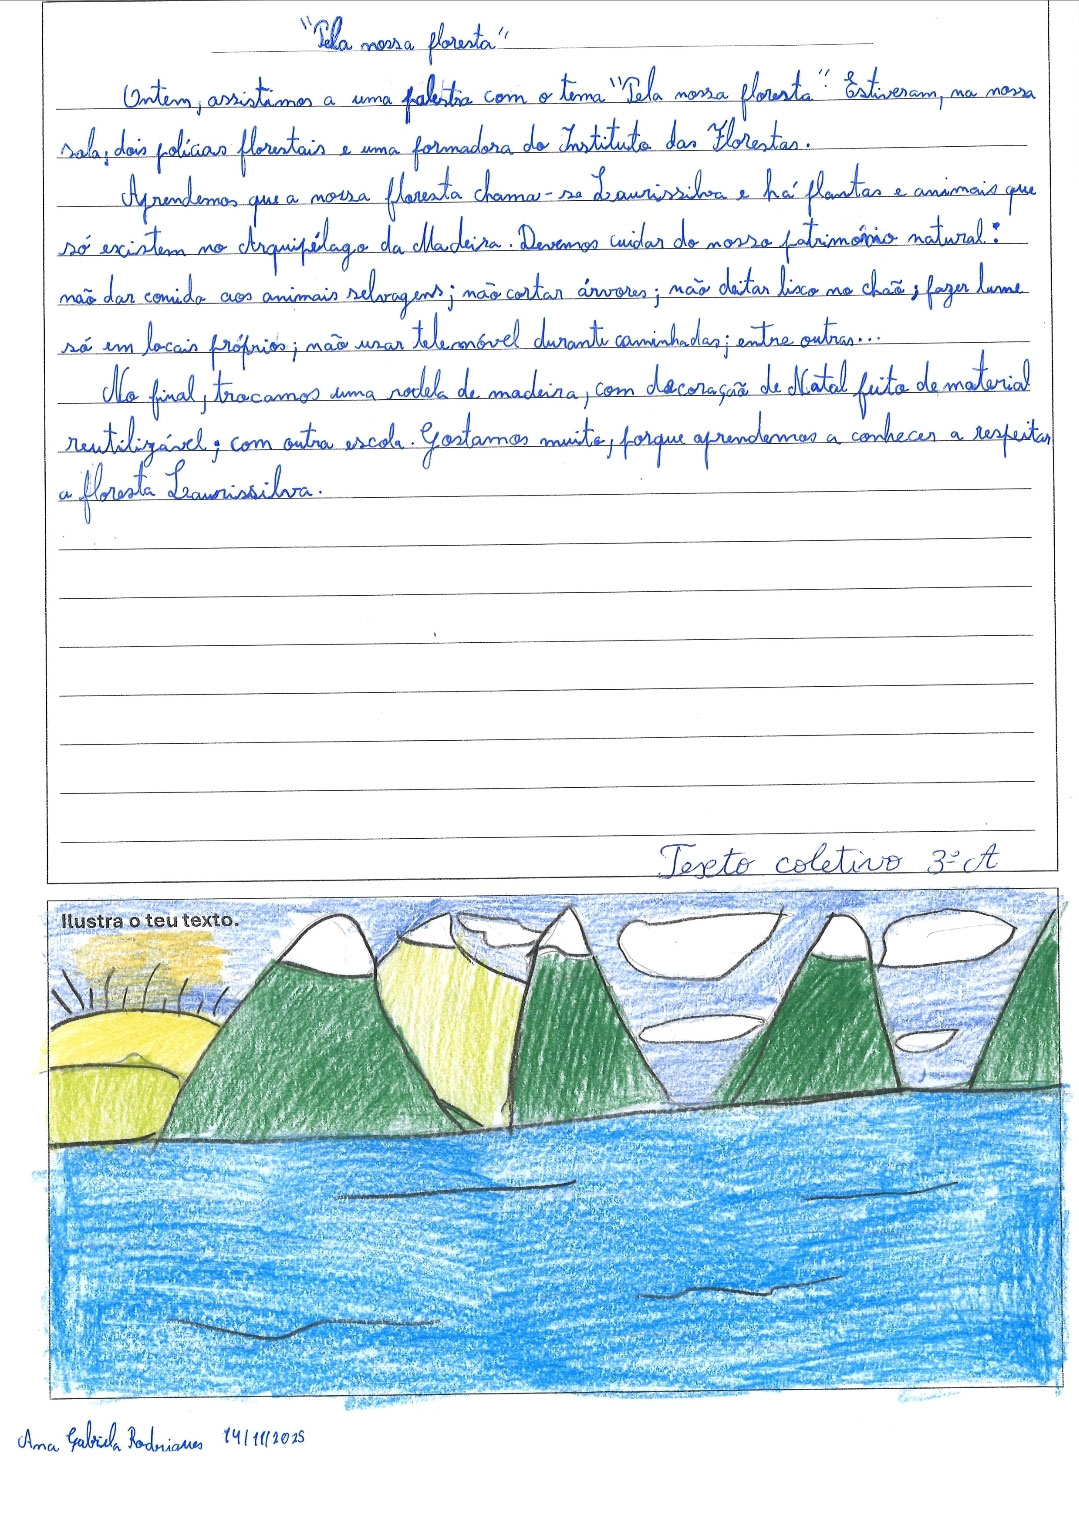 "Pela nossa floresta"
Ontem, assistimos a uma palestra com o tema "Pela nossa floresta". Estiveram, na nossa
sala, dois polícias florestais e uma formadora do Instituto das Florestas.
Aprendemos que a nossa floresta chama-se Laurissilva e há plantas e animais que
só existem no Arquipélago da Madeira. Devemos cuidar do nosso património natural:
não dar comida aos animais selvagens; não cortar árvores; não deitar lixo no chão; fazer lume
só em locais próprios; não usar telemóvel durante caminhadas; entre outras...
No final, trocamos uma rodela de madeira, com decoração de Natal feito de material
reutilizável; com outra escola. Gostamos muito, porque aprendemos a conhecer a respeitar
a floresta Laurissilva.
Texto coletivo 3º A
Ilustra o teu texto.
Ana Gabriela Rodrigues 14/11/2025